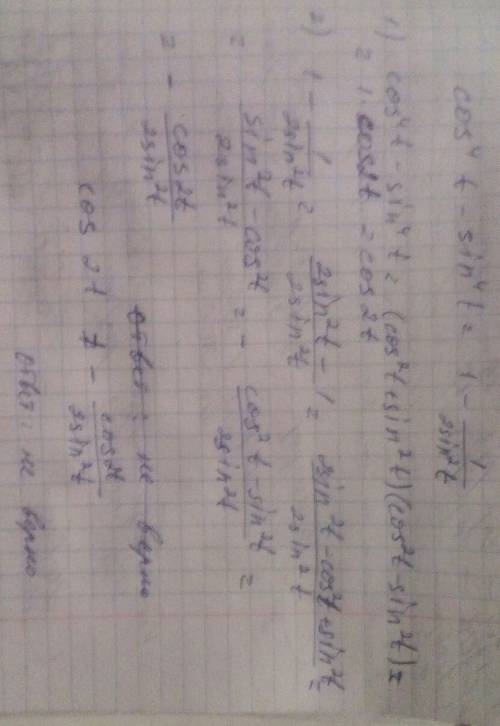 cos⁴t - sin⁴t = 1 - 1/2sin²t
1) cos⁴t - sin⁴t = (cos²t + sin²t)(cos²t - sin²t) =
= 1 · cos2t = cos2t
2) 1 - 1/2sin²t = 2sin²t - 1/2sin²t = 2sin²t - cos²t + sin²t/2sin²t =
= sin²t - cos²t/2sin²t = - cos²t - sin²t/2sin²t =
= - cos2t/2sin²t
ответ: не верно
cos2t ≠ - cos2t/2sin²t
ответ: не верно